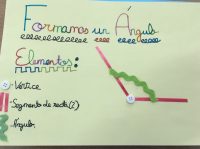 Formamos un Ángulo
Elementos:
-Vértice
-Segmento de recta(2)
-Ángulo.